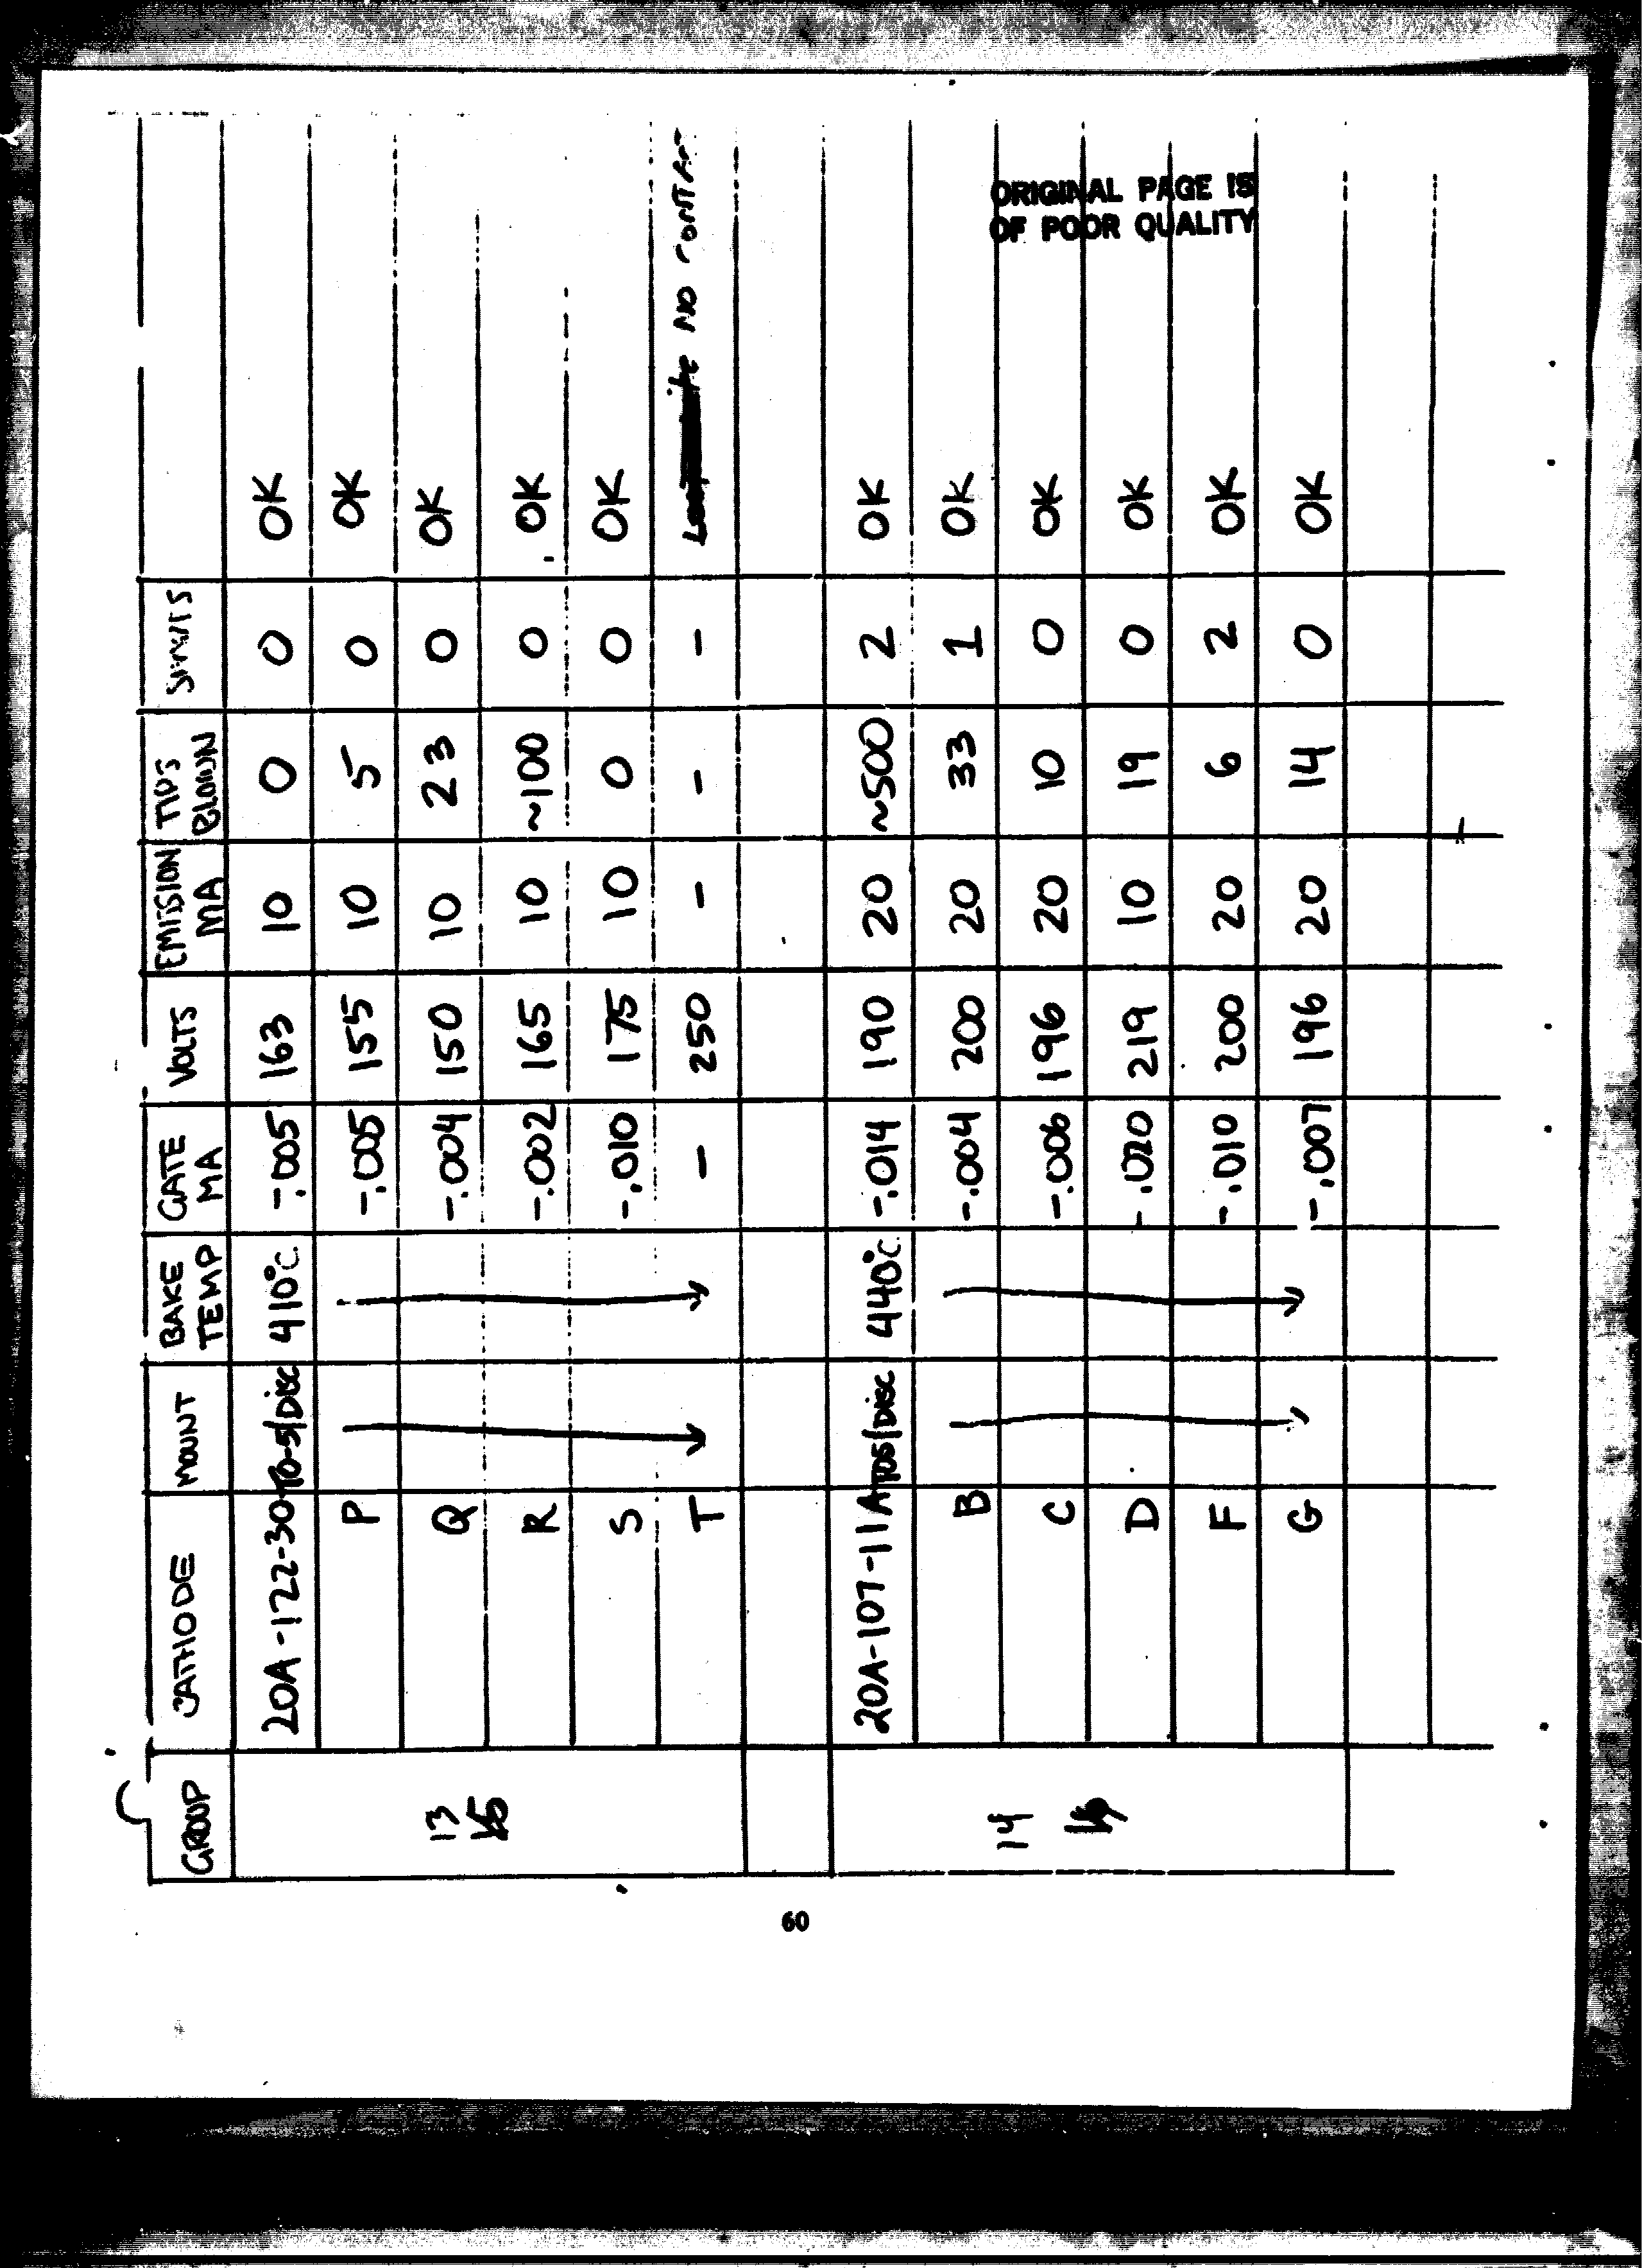 GROUP CATHODE MOUNT BAKE TEMP GATE MA VOLTS EMISSION MA TIPS BLOWN
13 20A-122-30 TO-5/DISC 410°C -.005 163 10 0 0 OK
P -.005 155 10 5 0 OK
Q -.004 150 10 23 0 OK
R -.002 165 10 ~100 0 OK
S -.010 175 10 0 0 OK
T - 250 - - - NO CONTACT
14 20A-107-11A TO5/DISC 440°C -.014 190 20 ~500 2 OK
B -.004 200 20 33 1 OK
C -.006 196 20 10 0 OK
D -.020 219 10 19 0 OK
F -.010 200 20 6 2 OK
G -.007 196 20 14 0 OK
ORIGINAL PAGE IS
OF POOR QUALITY
60